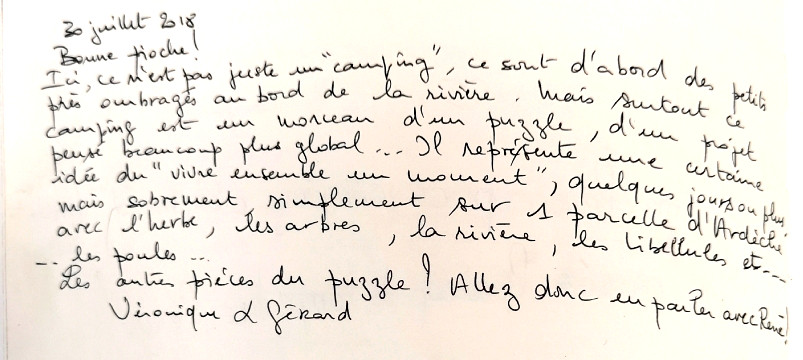 30 juillet 2018
Bonne pioche!
Ici, ce n'est pas juste un "camping", ce sont d'abord des petits
près ombragés au bord de la rivière. Mais surtout ce
camping est un morceau d'un puzzle, d'un projet
pensé beaucoup plus global... Il représente une certaine
idée du "vivre ensemble un moment", quelques jours ou plus,
mais sobrement, simplement sur 1 parcelle d'Ardèche
avec l'herbe, les arbres, la rivière, les libellules et ---
... les poules ...
Les autres pièces du puzzle! Allez donc en parler avec René!
Véronique & Gérard